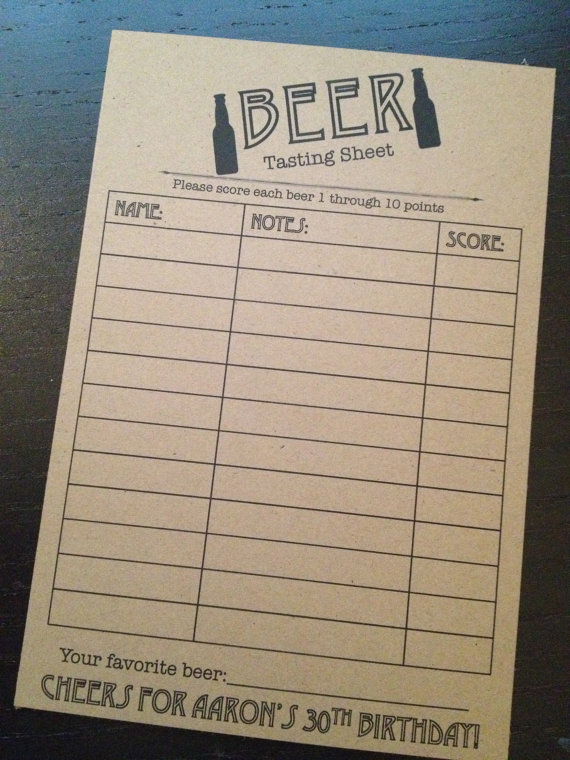 BEER
Tasting Sheet
Please score each beer 1 through 10 points
NAME: NOTES: SCORE:
Your favorite beer:
CHEERS FOR AARON'S 30TH BIRTHDAY!